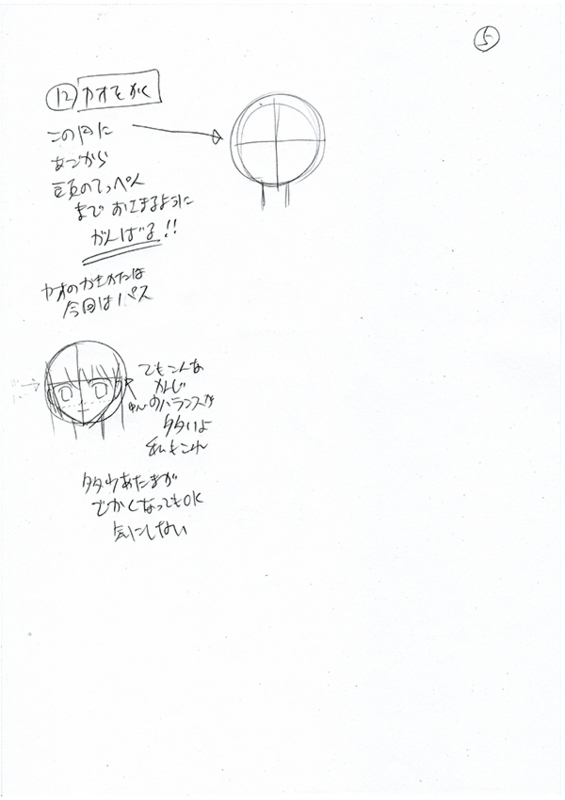 ⑤
⑫ カオをかく
この円に
あごから
頭のてっぺん
まで おさまるように
がんばる!!
カオのかきかたは
今回はパス
でもこんな
かんじ
のバランスが
多いよ
私もこれ
多少あたまが
でかくなってもOK
気にしない